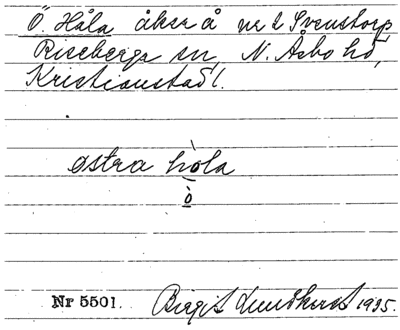 Ö. Håla åker å nr 2 Svenstorp
Riseberga sn, N. Åsbo hd,
Kristianstad l.
østra hòla
ò
Nr 5501. Birgit Lundkvist 1935.